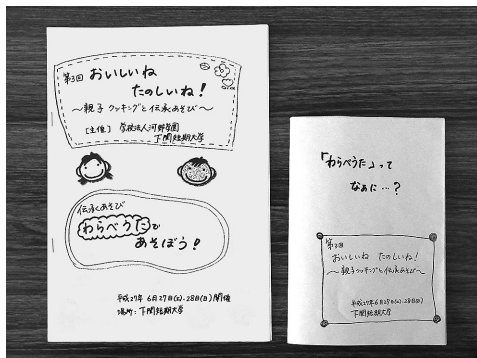 第3回 おいしいね
たのしいね!
〜親子クッキングと伝承あそび〜
[主催] 学校法人河野学園
下関短期大学
伝承あそび
わらべうたで
あそぼう!
平成27年 6月27日(土)・28日(日)開催
場所:下関短期大学
「わらべうた」って
なぁに…?
第3回
おいしいね たのしいね!
〜親子クッキングと伝承あそび〜
平成27年6月27日(土)・28日(日)
下関短期大学